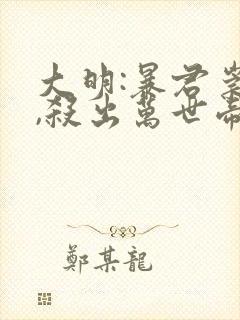 大明:暴君崇
,殺出萬世帝
鄭某龍